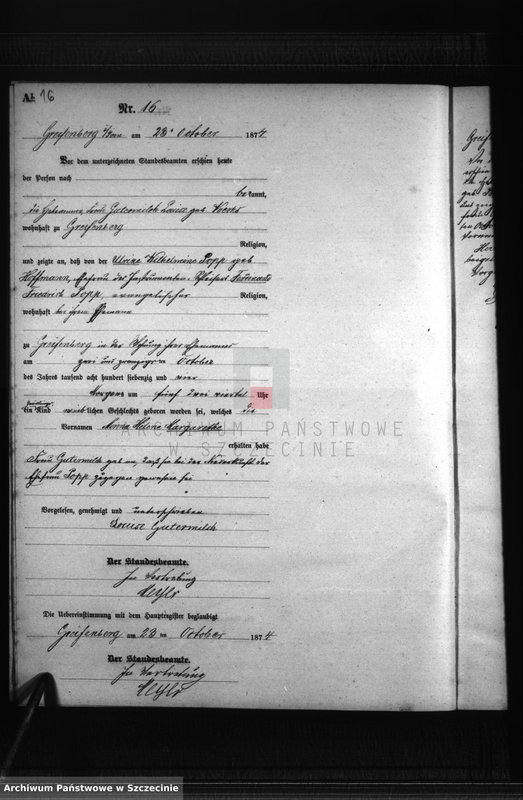 A: 16
Nr. 16
Greifenberg i/Pom am 23. October 1874
Vor dem unterzeichneten Standesbeamten erschien heute
der Person nach
bekannt,
die Hebeamme, Louise geb
wohnhaft zu Greifenberg
Religion,
und zeigte an, daß von der Ulrike Wilhelmine Popp geb
Hoffmann, Ehefrau des Ferdinand
Friedrich Popp, evangelischer Religion,
wohnhaft bei ihrem Ehemann
zu Greifenberg in der Wohnung ihres Ehemannes
am zwei und zwanzigsten October
des Jahres tausend acht hundert siebenzig und vier
Morgens um fünf zwei viertel Uhr
ein Kind weiblichen Geschlechts geboren worden sei, welches die
Vornamen Anna Helene Margarethe
erhalten habe
Frau Gutermilch gab an, daß sie bei der Niederkunft der
Ehefrau Popp zugegen gewesen sei
Vorgelesen, genehmigt und unterschrieben
Louise Gutermilch
Der Standesbeamte.
In Vertretung
Die Uebereinstimmung mit dem Hauptregister beglaubigt
Greifenberg am 23 ten October 1874
Der Standesbeamte.
In Vertretung
ARCHIWUM PAŃSTWOWE
W SZCZECINIE
Archiwum Państwowe w Szczecinie